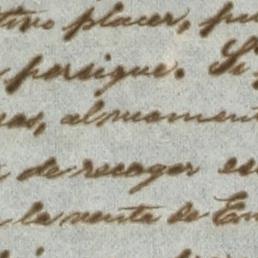 placer,
persigue. Si
al momen
de recoger es
la venta de En